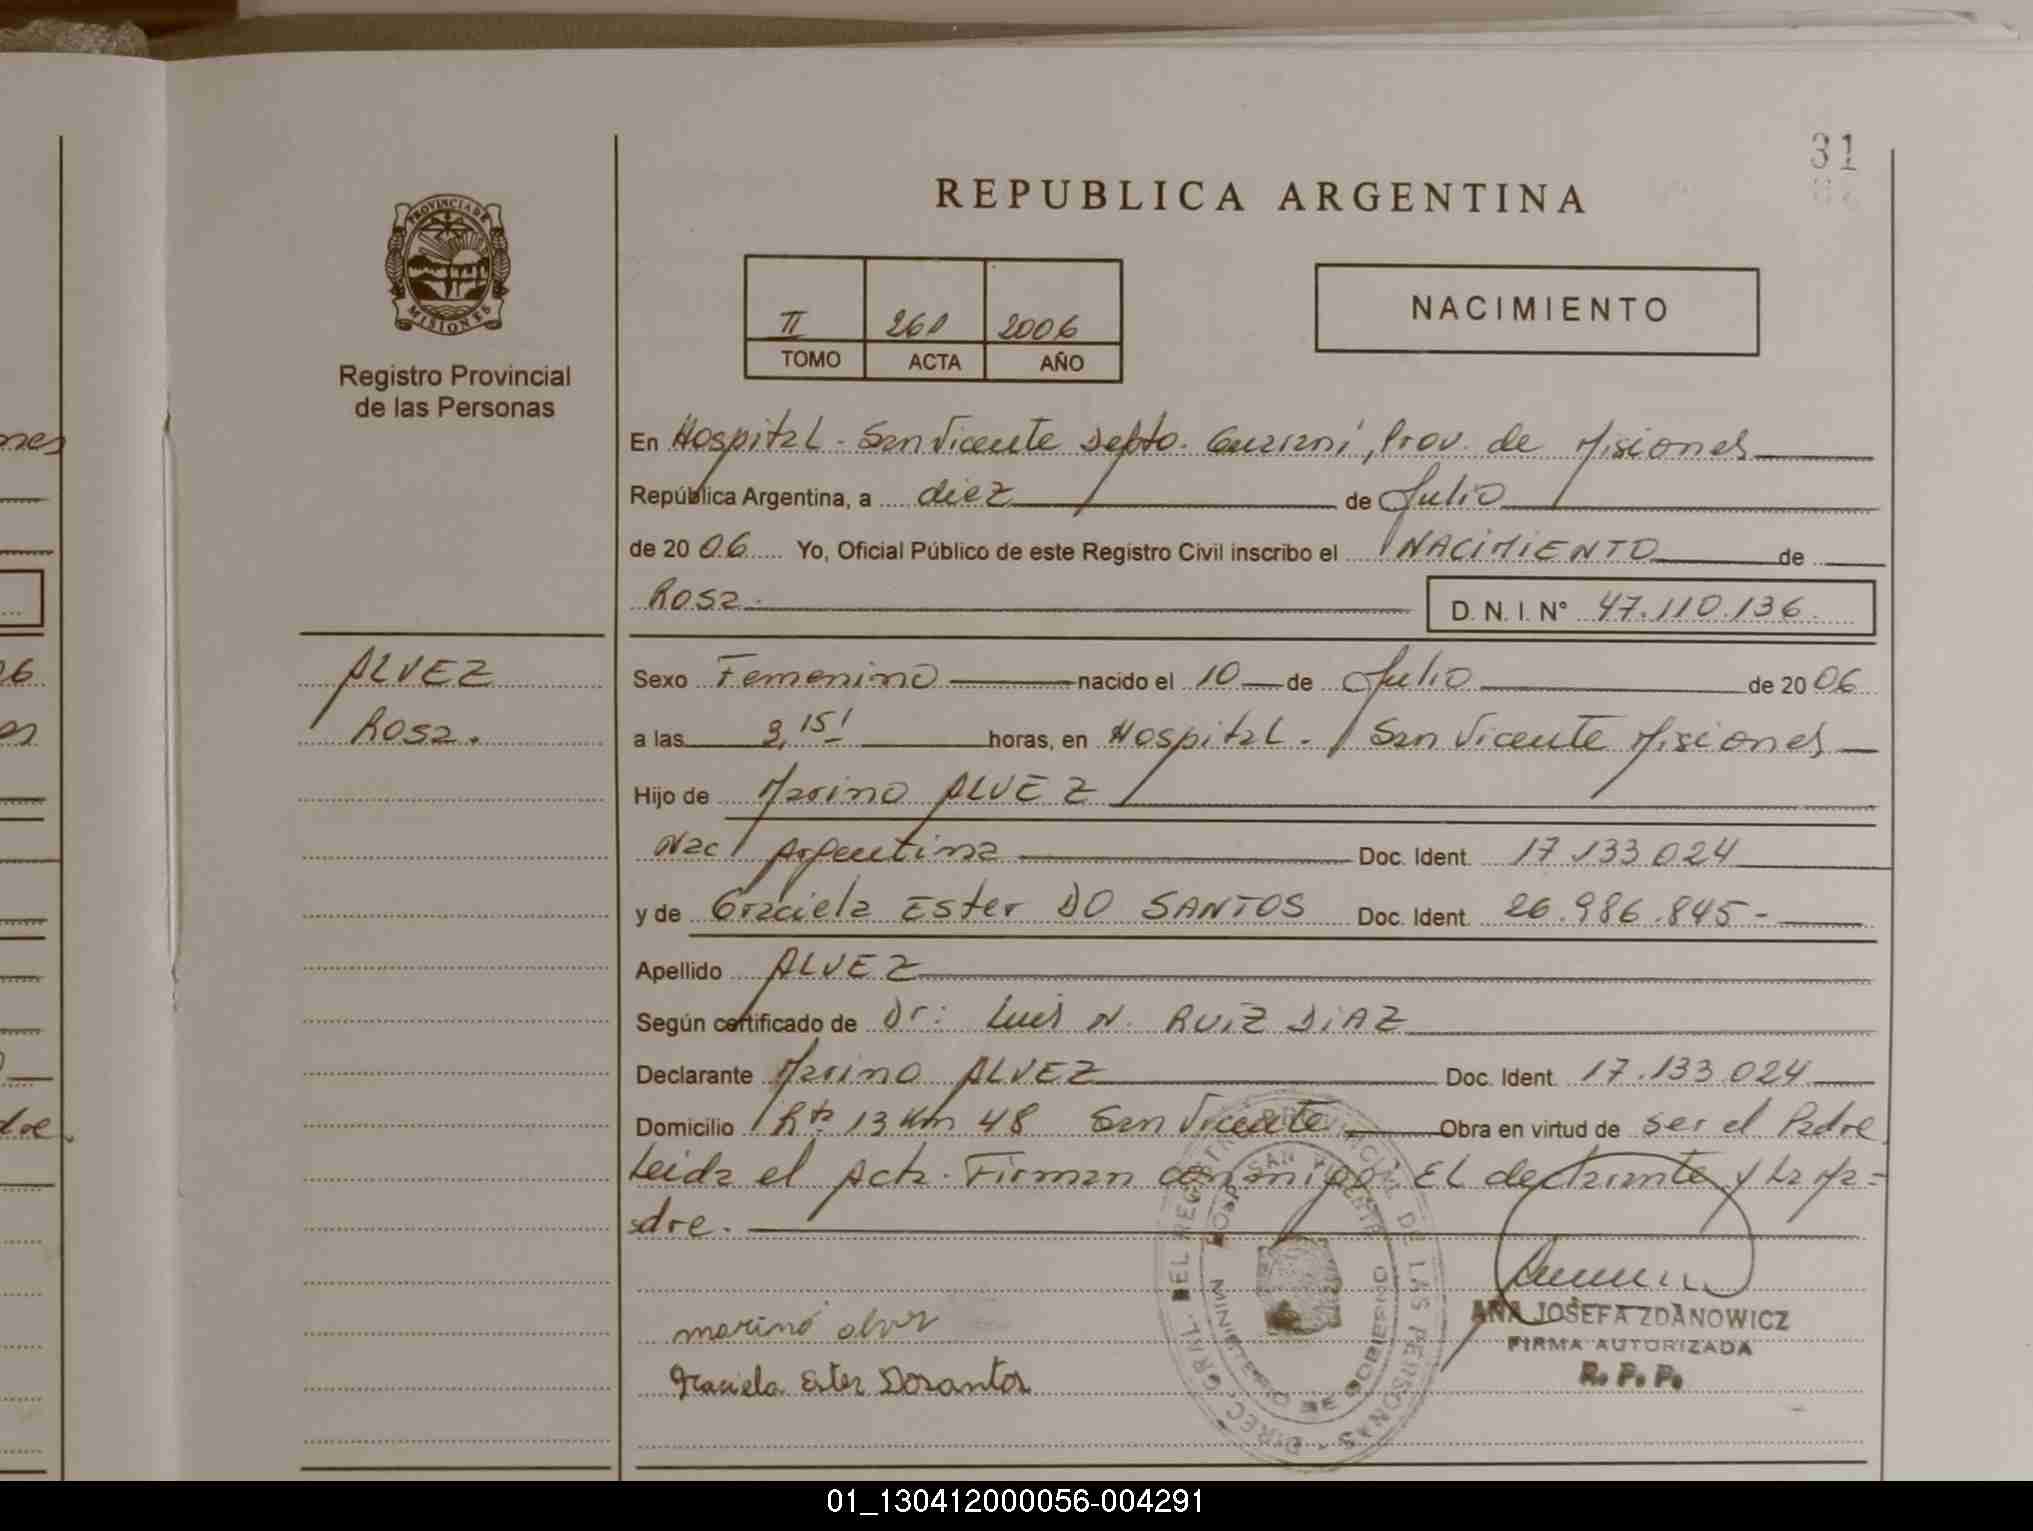 31
REPUBLICA ARGENTINA
PROVINCIA DE
MISIONES
Registro Provincial
de las Personas
II 261 2006
TOMO ACTA AÑO
NACIMIENTO
En Hospital - San Vicente Depto. Guaraní, Prov. de Misiones
República Argentina, a diez de Julio
de 2006 Yo, Oficial Público de este Registro Civil inscribo el NACIMIENTO de
Rosa.
D. N. I. N° 47.110.136
ALVEZ
Rosa.
Sexo Femenino nacido el 10 de Julio de 2006
a las 3,15' horas, en Hospital - San Vicente Misiones
Hijo de Marino ALVEZ
Nac Argentina Doc. Ident. 17.133.024
y de Graciela Ester DO SANTOS Doc. Ident. 26.986.845-
Apellido ALVEZ
Según certificado de Dr: Luis N. RUIZ DIAZ
Declarante Marino ALVEZ Doc. Ident. 17.133.024
Domicilio Rta 13 Km 48 San Vicente Obra en virtud de ser el Padre
Leida el Acta. Firman conmigo: EL declarante y La Ma=
dre.
DIREC. GRAL. DEL REGISTRO PROVINCIAL DE LAS PERSONAS
HOSP. SAN VICENTE
MINISTERIO DE GOBIERNO
marino alvez
Graciela Ester Dosantos
ANA JOSEFA ZDANOWICZ
FIRMA AUTORIZADA
R. P. P.
01_130412000056-004291